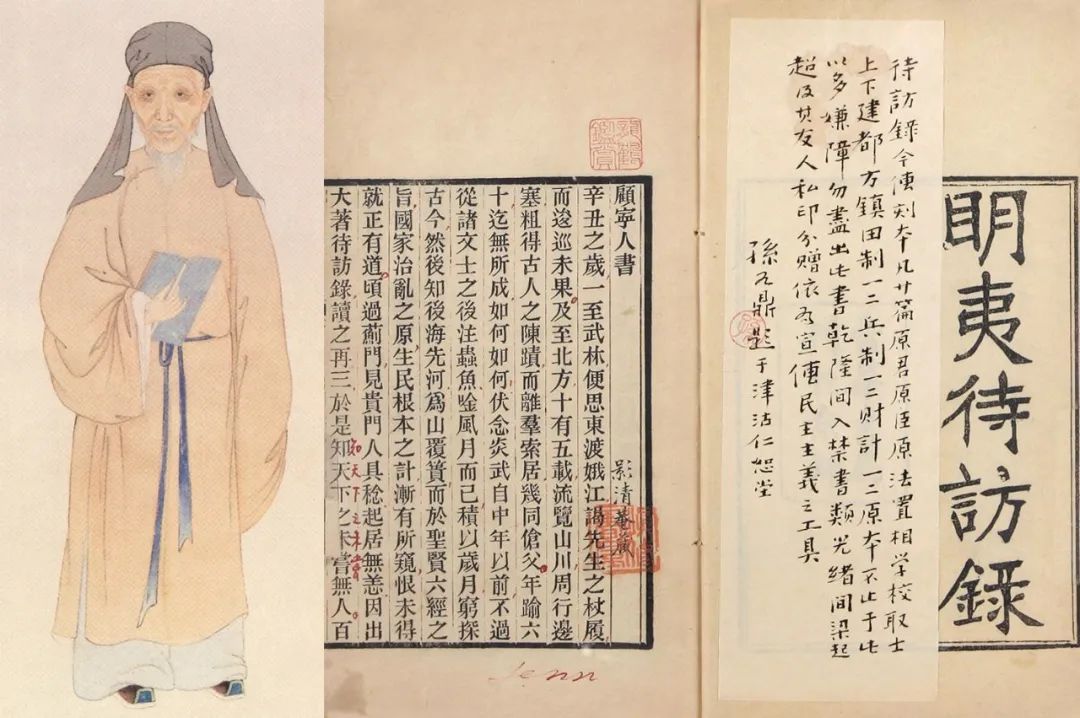 明夷待訪錄
待訪錄今傳刻本凡廿篇原君原臣原法置相学校取士
上下建都方鎮田制一二三兵制一二三財計一二三原本不止于此
以多嫌障勿盡出此書乾隆間入禁書類光緒間梁起
超及其友人私印分贈依為宣傳民主主義之工具
孫鼎題于津沽仁恕堂
顧寧人書
景清菴藏
辛丑之歲一至武林便思東渡娥江謁先生之杖履
而逡巡未果及至北方十有五載流覽山川周行邊
塞粗得古人之陳蹟而離羣索居幾同傖父年踰六
十迄無所成如何如何伏念炎武自中年以前不過
從諸文士之後注蟲魚唫風月而已積以歲月窮探
古今然後知後海先河爲山覆簣而於聖賢六經之
旨國家治亂之原生民根本之計漸有所窺恨未得
就正有道頃過薊門見貴門人具稔起居無恙因出
大著待訪錄讀之再三於是知天下之未嘗無人百
知天下之未嘗